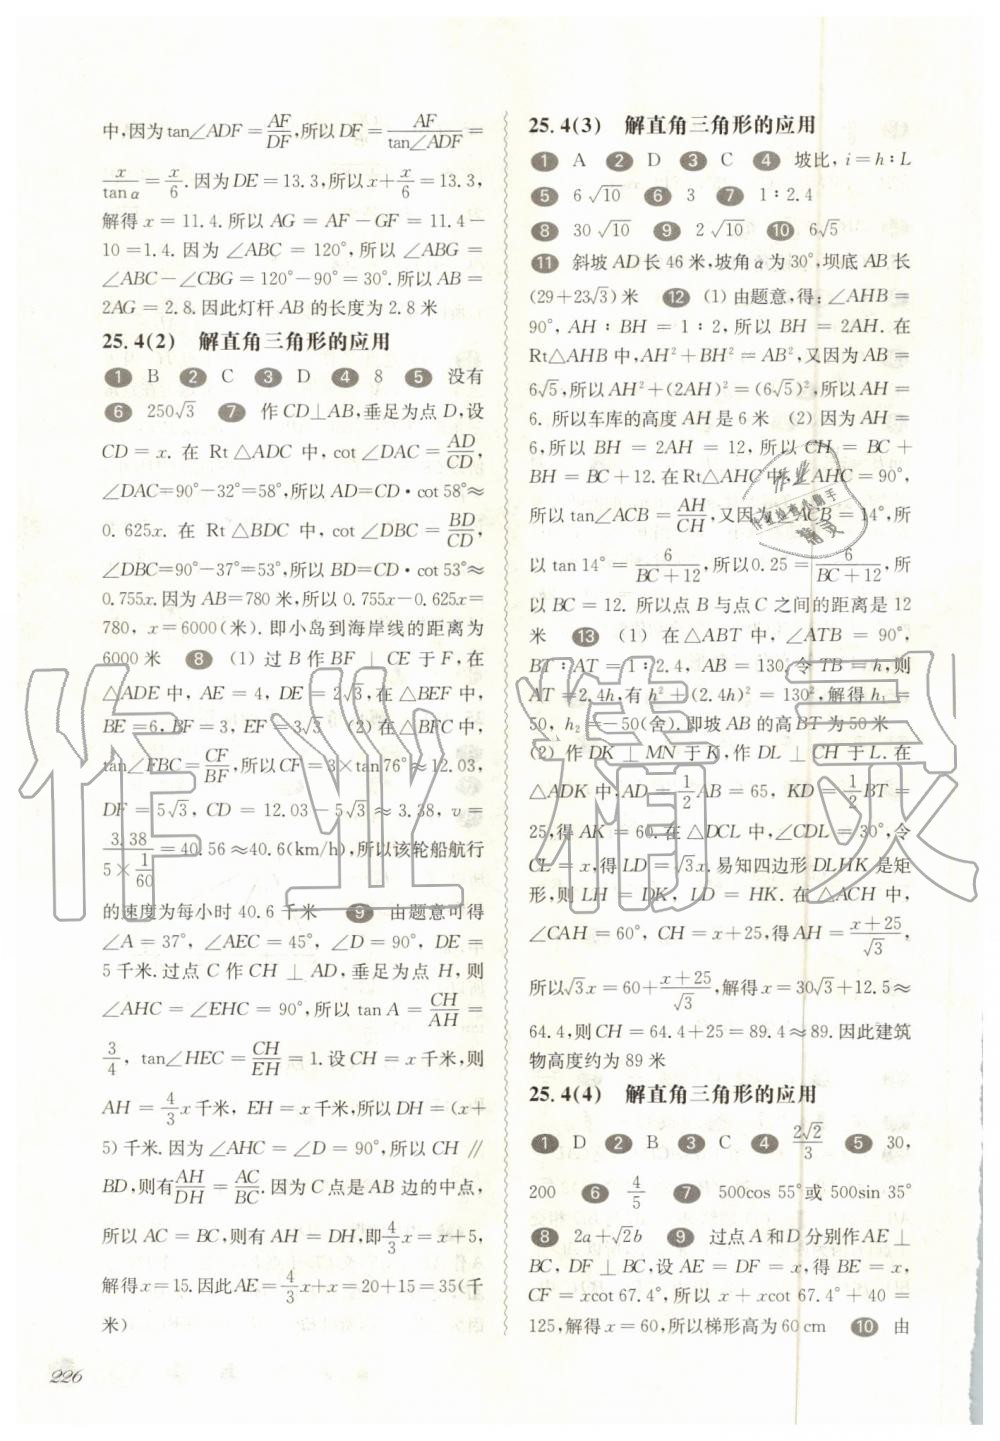 中,因为tan∠ADF=AF/DF,所以DF=AF/tan∠ADF=
x/tanα=x/6.因为DE=13.3,所以x+x/6=13.3,
解得x=11.4.所以AG=AF-GF=11.4-
10=1.4.因为∠ABC=120°,所以∠ABG=
∠ABC-∠CBG=120°-90°=30°.所以AB=
2AG=2.8.因此灯杆AB的长度为2.8米
25.4(2) 解直角三角形的应用
1 B 2 C 3 D 4 8 5 没有
6 250√3 7 作CD⊥AB,垂足为点D,设
CD=x.在Rt△ADC中,cot∠DAC=AD/CD,
∠DAC=90°-32°=58°,所以AD=CD·cot58°≈
0.625x.在Rt△BDC中,cot∠DBC=BD/CD,
∠DBC=90°-37°=53°,所以BD=CD·cot53°≈
0.755x.因为AB=780米,所以0.755x-0.625x=
780,x=6000(米).即小岛到海岸线的距离为
6000米 8 (1)过B作BF⊥CE于F,在
△ADE中,AE=4,DE=2√3,在△BEF中,
BE=6,BF=3,EF=3√3 (2)在△BFC中,
tan∠FBC=CF/BF,所以CF=3×tan76°≈12.03,
DF=5√3,CD=12.03-5√3≈3.38,v=
3.38/(5×1/60)=40.56≈40.6(km/h),所以该轮船航行
的速度为每小时40.6千米 9 由题意可得
∠A=37°,∠AEC=45°,∠D=90°,DE=
5千米.过点C作CH⊥AD,垂足为点H,则
∠AHC=∠EHC=90°,所以tanA=CH/AH=
3/4,tan∠HEC=CH/EH=1.设CH=x千米,则
AH=4/3x千米,EH=x千米,所以DH=(x+
5)千米.因为∠AHC=∠D=90°,所以CH∥
BD,则有AH/DH=AC/BC.因为C点是AB边的中点,
所以AC=BC,则有AH=DH,即4/3x=x+5,
解得x=15.因此AE=4/3x+x=20+15=35(千
米)
226
25.4(3) 解直角三角形的应用
1 A 2 D 3 C 4 坡比,i=h∶L
5 6√10 6 3 7 1∶2.4
8 30√10 9 2√10 10 6√5
11 斜坡AD长46米,坡角α为30°,坝底AB长
(29+23√3)米 12 (1)由题意,得:∠AHB=
90°,AH∶BH=1∶2,所以BH=2AH.在
Rt△AHB中,AH²+BH²=AB²,又因为AB=
6√5,所以AH²+(2AH)²=(6√5)²,所以AH=
6.所以车库的高度AH是6米 (2)因为AH=
6,所以BH=2AH=12,所以CH=BC+
BH=BC+12.在Rt△AHC中,∠AHC=90°,
所以tan∠ACB=AH/CH,又因为∠ACB=14°,所
以tan14°=6/(BC+12),所以0.25=6/(BC+12),所
以BC=12.所以点B与点C之间的距离是12
米 13 (1)在△ABT中,∠ATB=90°,
BT∶AT=1∶2.4,AB=130.令TB=h,则
AT=2.4h,有h²+(2.4h)²=130²,解得h₁=
50,h₂=-50(舍).即坡AB的高BT为50米
(2)作DK⊥MN于K,作DL⊥CH于L.在
△ADK中,AD=1/2AB=65,KD=1/2BT=
25,得AK=60.在△DCL中,∠CDL=30°,令
CL=x,得LD=√3x.易知四边形DLHK是矩
形,则LH=DK,LD=HK.在△ACH中,
∠CAH=60°,CH=x+25,得AH=(x+25)/√3,
所以√3x=60+(x+25)/√3,解得x=30√3+12.5≈
64.4,则CH=64.4+25=89.4≈89.因此建筑
物高度约为89米
25.4(4) 解直角三角形的应用
1 D 2 B 3 C 4 2√2/3 5 30,
200 6 4/5 7 500cos55°或500sin35°
8 2a+√2b 9 过点A和D分别作AE⊥
BC,DF⊥BC,设AE=DF=x,得BE=x,
CF=xcot67.4°,所以x+xcot67.4°+40=
125,解得x=60,所以梯形高为60cm 10 由
作业精灵